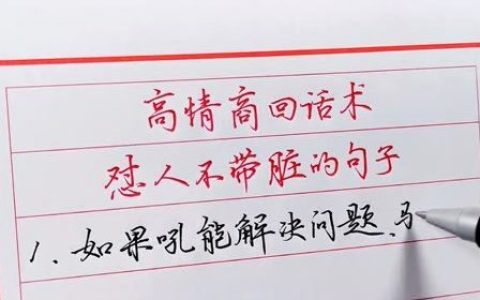 高情商回话术
怼人不带脏的句子
1、如果吼能解决问题、